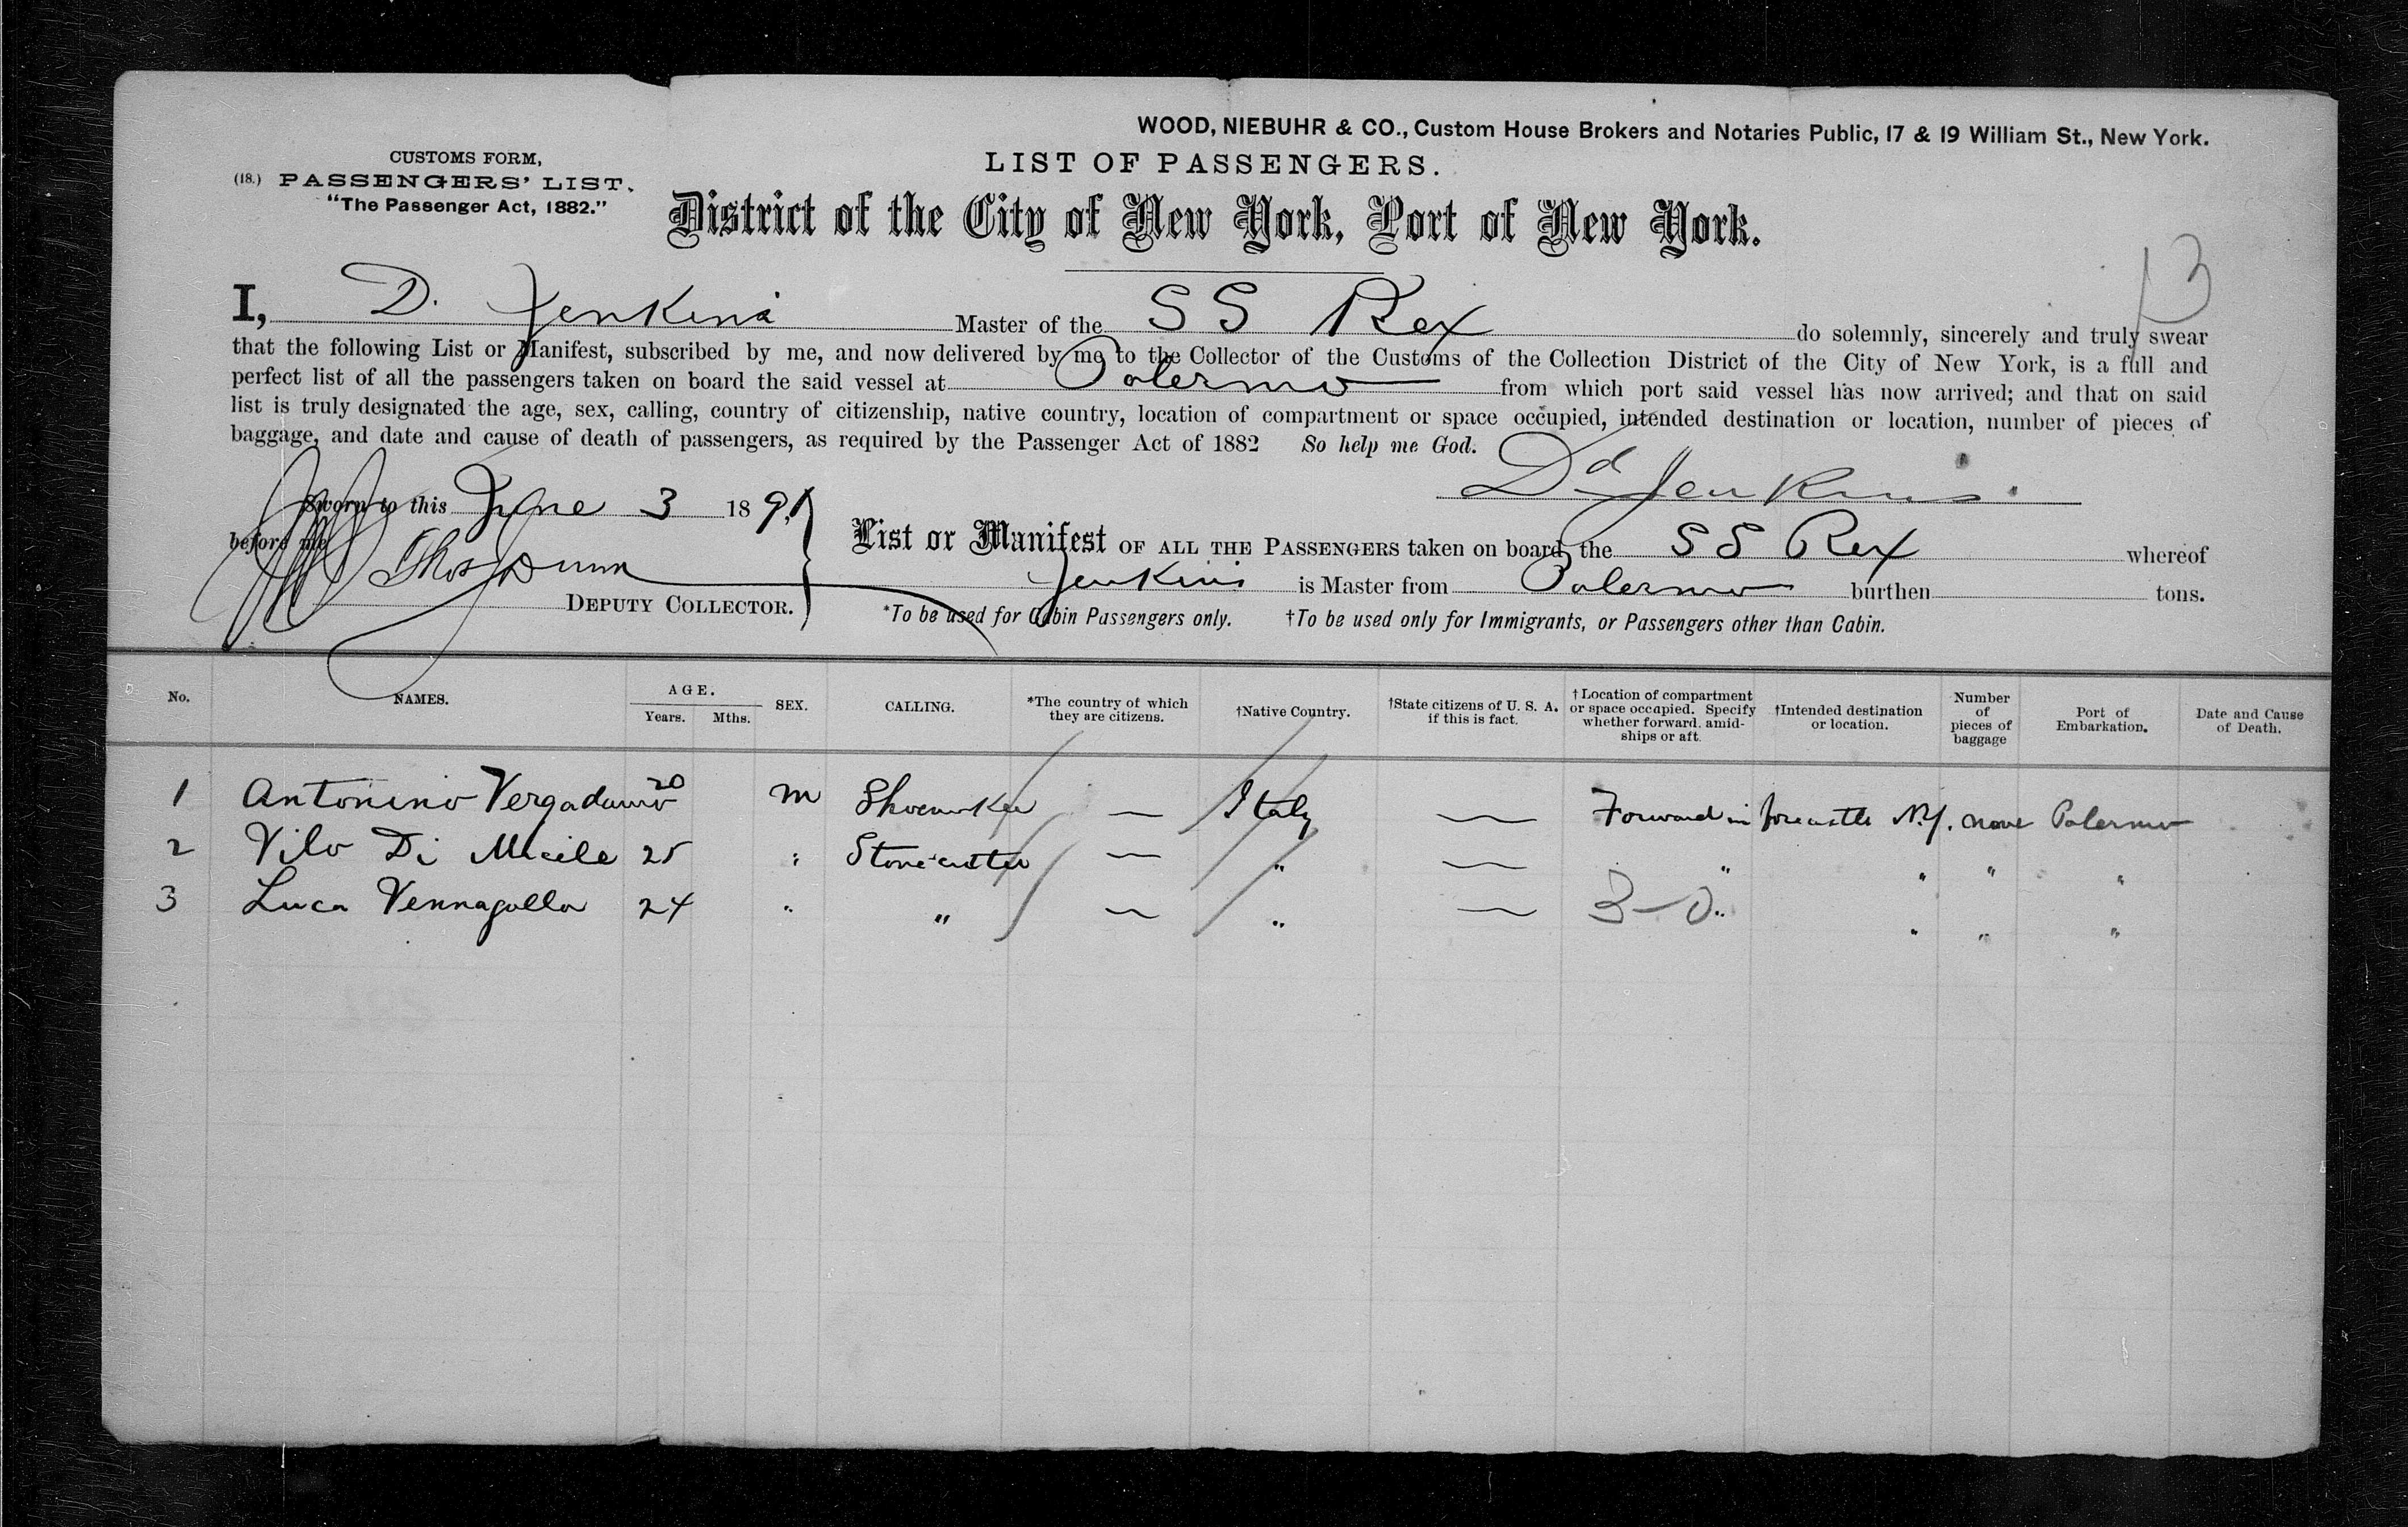 WOOD, NIEBUHR & CO., Custom House Brokers and Notaries Public, 17 & 19 William St., New York.
CUSTOMS FORM,
(18.) PASSENGERS' LIST.
"The Passenger Act, 1882."
LIST OF PASSENGERS.
District of the City of New York, Port of New York.
13
I, D. Jenkins Master of the SS Rex do solemnly, sincerely and truly swear
that the following List or Manifest, subscribed by me, and now delivered by me to the Collector of the Customs of the Collection District of the City of New York, is a full and
perfect list of all the passengers taken on board the said vessel at Palermo from which port said vessel has now arrived; and that on said
list is truly designated the age, sex, calling, country of citizenship, native country, location of compartment or space occupied, intended destination or location, number of pieces of
baggage, and date and cause of death of passengers, as required by the Passenger Act of 1882 So help me God.
Dd Jenkins
Sworn to this June 3 1891
before me Thos Dunn
DEPUTY COLLECTOR.
List or Manifest OF ALL THE PASSENGERS taken on board the SS Rex whereof
Jenkins is Master from Palermo burthen tons.
*To be used for Cabin Passengers only. †To be used only for Immigrants, or Passengers other than Cabin.
No. NAMES. AGE. Years. Mths. SEX. CALLING. *The country of which they are citizens. †Native Country. †State citizens of U. S. A. if this is fact. †Location of compartment or space occupied. Specify whether forward, amidships or aft. †Intended destination or location. Number of pieces of baggage Port of Embarkation. Date and Cause of Death.
1 Antonino Vergadamo 20 m Shoemaker — Italy — Forward in forecastle N.Y. none Palermo
2 Vito Di Micele 25 " Stonecutter — " — " " " "
3 Luca Vennagolla 24 " " — " — 3-0 " " " "